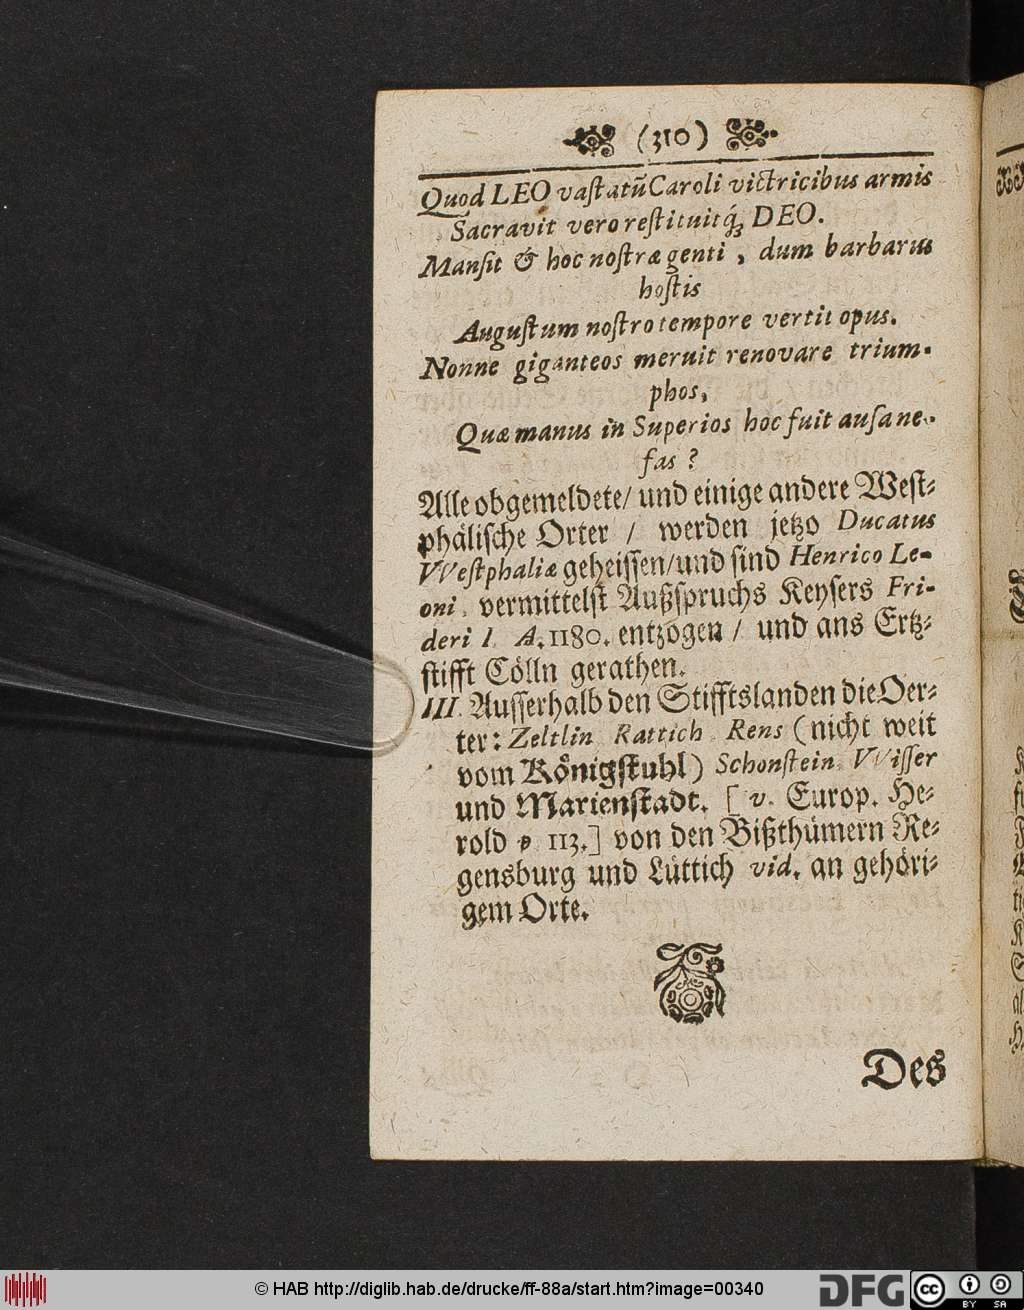 (310)
Quod LEO vaſtatũ Caroli victricibus armis
Sacravit vero reſtituitq́; DEO.
Manſit & hoc noſtræ genti, dum barbarus
hoſtis
Auguſtum noſtro tempore vertit opus.
Nonne giganteos meruit renovare trium-
phos,
Quæ manus in Superios hoc fuit auſa ne-
fas?
Alle obgemeldete/ und einige andere Weſt-
phäliſche Orter / werden jetzo Ducatus
VVeſtphaliæ geheiſſen/und ſind Henrico Le-
oni vermittelſt Außſpruchs Keyſers Fri-
deri I. A. 1180. entzogen / und ans Ertz-
ſtifft Cölln gerathen.
III. Auſſerhalb den Stifftslanden die Oer-
ter: Zeltlin Rattich Rens (nicht weit
vom Königſtuhl) Schonſtein VViſſer
und Marienſtadt. [v. Europ. He-
rold p 113.] von den Bißthümern Re-
gensburg und Lüttich vid. an gehöri-
gem Orte.
Des
© HAB http://diglib.hab.de/drucke/ff-88a/start.htm?image=00340
DFG
cc BY SA